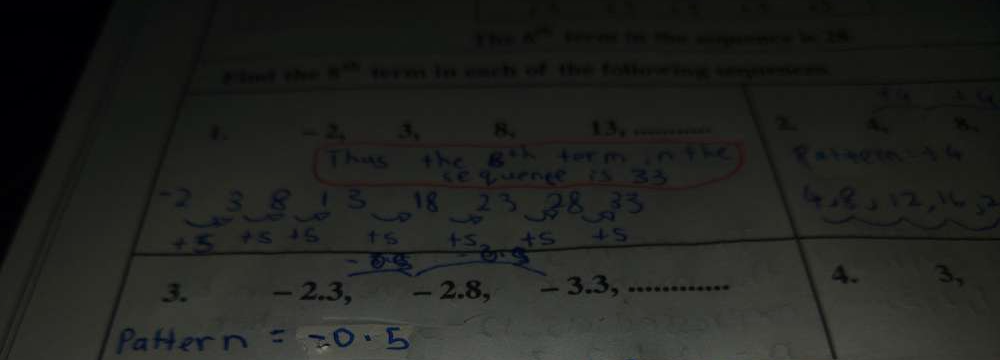 The 8th term in the sequence is 28
Find the 8th term in each of the following sequences
1. – 2, 3, 8, 13, ............
Thus the 8th term in the
sequence is 33
-2 3 8 13 18 23 28 33
+5 +5 +5 +5 +5 +5 +5
2. 4, 8,
+4 +4
Pattern +4
4, 8, 12, 16,
-0.5 -0.5
3. – 2.3, – 2.8, – 3.3, ..............
Pattern = -0.5
4. 3,